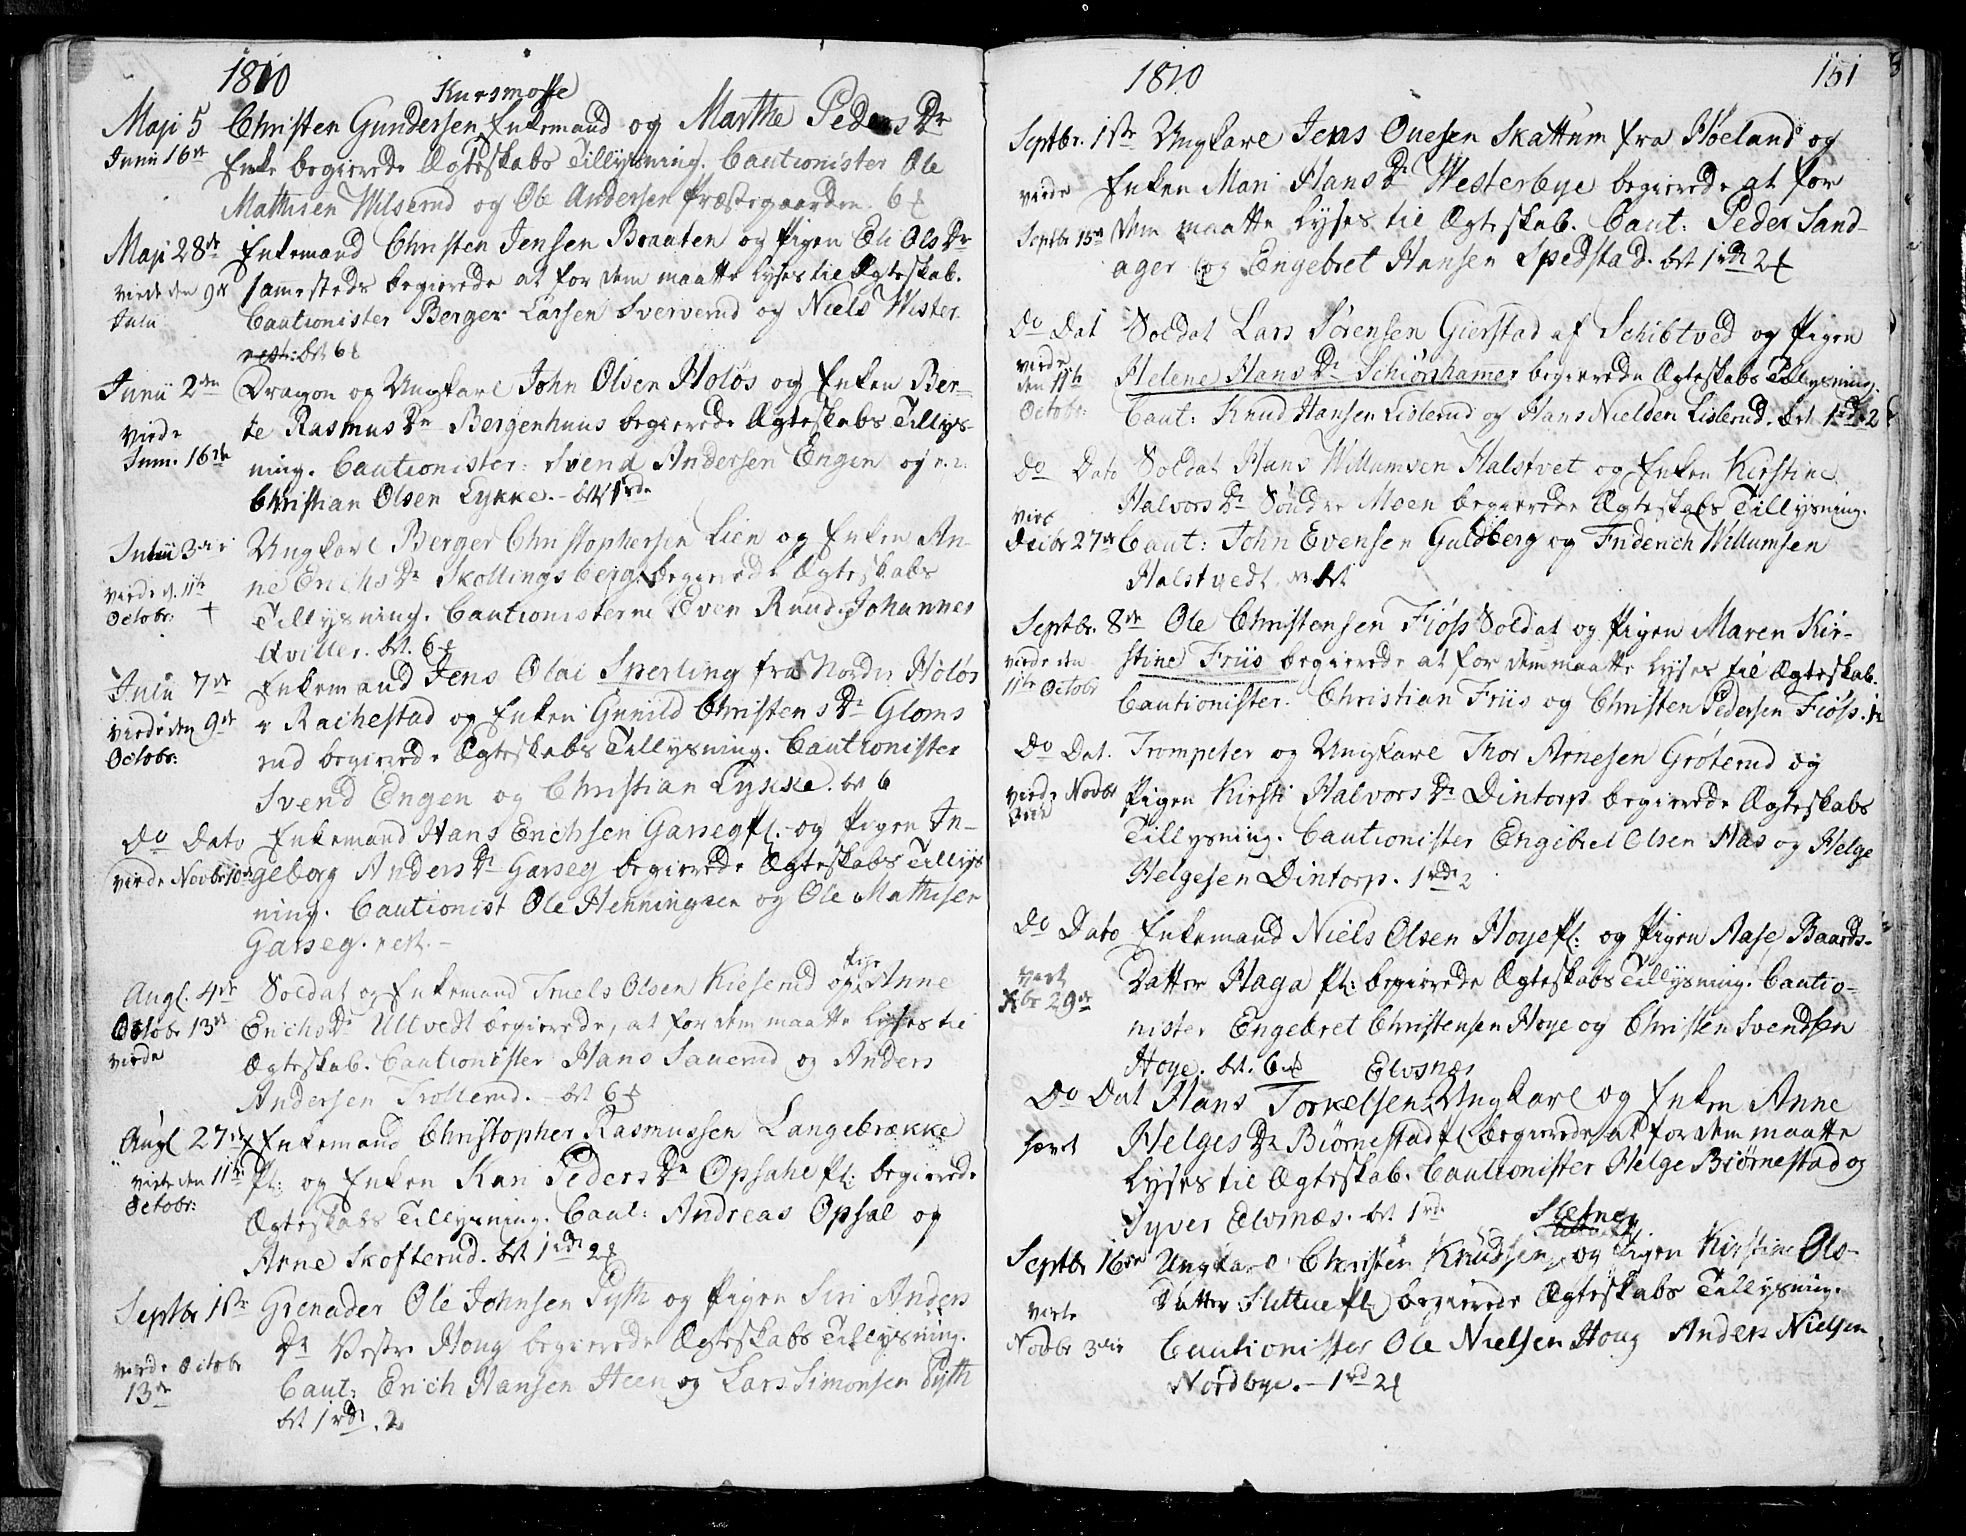 1810
Kursmosse
Maji 5 Christen Gundersen Enkemand og Marthe Peders Dr
Junii 16de Enke begierede Ægteskabs Tillysning. Cautionister Ole
Mathisen Wilserud og Ole Andersen Præstegaarden. 6
Maji 28de Enkemand Christen Jensen Braaten og Pigen Eli Ols Dr
viede den 9de samesteds begierede at for dem maatte lyses til Ægteskab.
Julii Cautionister Berger Larsen Sververud og Niels Wister
rest: bet 6
Junii 2den Dragon og Ungkarl John Olsen Holøs og Enken Ber-
te Rasmus Dr Bergenhuus begierede Ægteskabs Tillys-
viede
Junii 16de ning. Cautionister: Svend Andersen Engen og
Christian Olsen Lykke. - bet 1rd
Julii 3die Ungkarl Berger Christophersen Lien og Enken An-
viede d. 11te ne Erichs Dr Skollingsberg begierede Ægteskabs
Octobr: + Tillysning. Cautionisterne Even Ruud, Johannes
Qviller. bet. 6
Julii 7de Enkemand Jens Olai Sperling fra Nordre Holøs
viede den 9de Rachestad og Enken Gunild Christens Dr Gloms
Octobr: rud begierede Ægteskabs Tillysning. Cautionister
Svend Engen og Christian Lykke. bet 6
Do Dato Enkemand Hans Erichsen Garseg pl. og Pigen In-
viede Novbr 10de geborg Anders Dr Garseg begierede Ægteskabs Tillys
ning. Cautionist Ole Henningsen og Ole Mathisen
Garseg. rest. -
Pige
Augl. 4de Soldat og Enkemand Truels Olsen Kieserud og Anne
Octobr 13de Erichs Dr Ultvedt begierede, at for dem maatte lyses til
viede Ægteskab. Cautionister Hans Sauerud og Anders
Andersen Trollerud. - bet 6
Augl 27de Enkemand Christopher Rasmussen Langebrække
viede den 11te pl: og Enken Kari Peders Dr Opsahl pl: begierede
Octobr: Ægteskabs Tillysning. Caut: Andreas Opsal og
Arne Skofterud. bet 1rd 2
Septbr 1ste Grenader Ole Johnsen Pyth og Pigen Siri Anders
Dr Vestre Houg begierede Ægteskabs Tillysning.
viede Octobr
13de Caut: Erich Hansen Heen og Lars Simonsen Pyth
bet 1rd. 2
1810
151
Septbr. 1ste Ungkarl Jens Ouesen Skattum fra Høeland og
viede Enken Mari Hans Dr Westerbye begierede at for
Septbr 15de dem maatte lyses til Ægteskab. Caut: Peder Sand-
ager og Engebret Hansen Spedstad. bet 1rd 2
Do Dat Soldat Lars Sørensen Gierstad af Schibtved og Pigen
viede
den 11te Helene Hans Dr Schiønhamer begierede Ægteskabs Tillysning.
Octobr: Caut: Knud Hansen Lislerud og Hans Nielsen Lislerud. bet 1rd 2
Do Dato Soldat Hans Willumsen Halstvet og Enken Kirstine
Halvors Dr Søndre Moen begierede Ægteskabs Tillysning.
viet
Decbr 27de Caut: John Evensen Guldberg og Friderich Willumsen
Halstvedt. bet
Septbr. 8de Ole Christensen Fiøss Soldat og Pigen Maren Kir-
viede den stine Friis begierede at for dem maatte lyses til Ægteskab.
11te Octobr Cautionister. Christian Friis og Christen Pedersen Fiøss.
Do Dat. Trompeter og Ungkarl Thor Arnesen Grøterud og
viede Novbr Pigen Kirsti Halvors Dr Dintorp begierede Ægteskabs
Tillysning. Cautionister Engebret Olsen Aas og Helge
Helgesen Dintorp. 1rd 2
Do Dato Enkemand Niels Olsen Hoye pl: og Pigen Aase Baards-
viet Datter Haga pl: begierede Ægteskabs Tillysning. Cautio-
Xbr 29de nister Engebret Christensen Hoye og Christen Svendsen
Hoye. bet. 6
Elvsnæs
Do Dat Hans Torkelsen, Ungkarl og Enken Anne
hævet Helges Dr Biørnestad pl begierede, at for dem maatte
lyses til Ægteskab. Cautionister Helge Biørnestad og
Syver Elvsnæs. bet 1rd
Sletner
Septbr 16de Ungkarl Christen Knudsen og Pigen Kirstine Ols-
Datter Slittue pl begierede Ægteskabs Tillysning.
viete
Novbr 3die Cautionister Ole Nielsen Houg Anders Nielsen
Nordbye. - 1rd 2